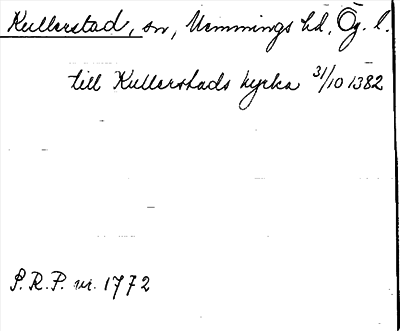 Kullerstad, sn, Memmings hd, Ög. l.
till Kullerstads kyrka 31/10 1382
S.R.P. nr. 1772